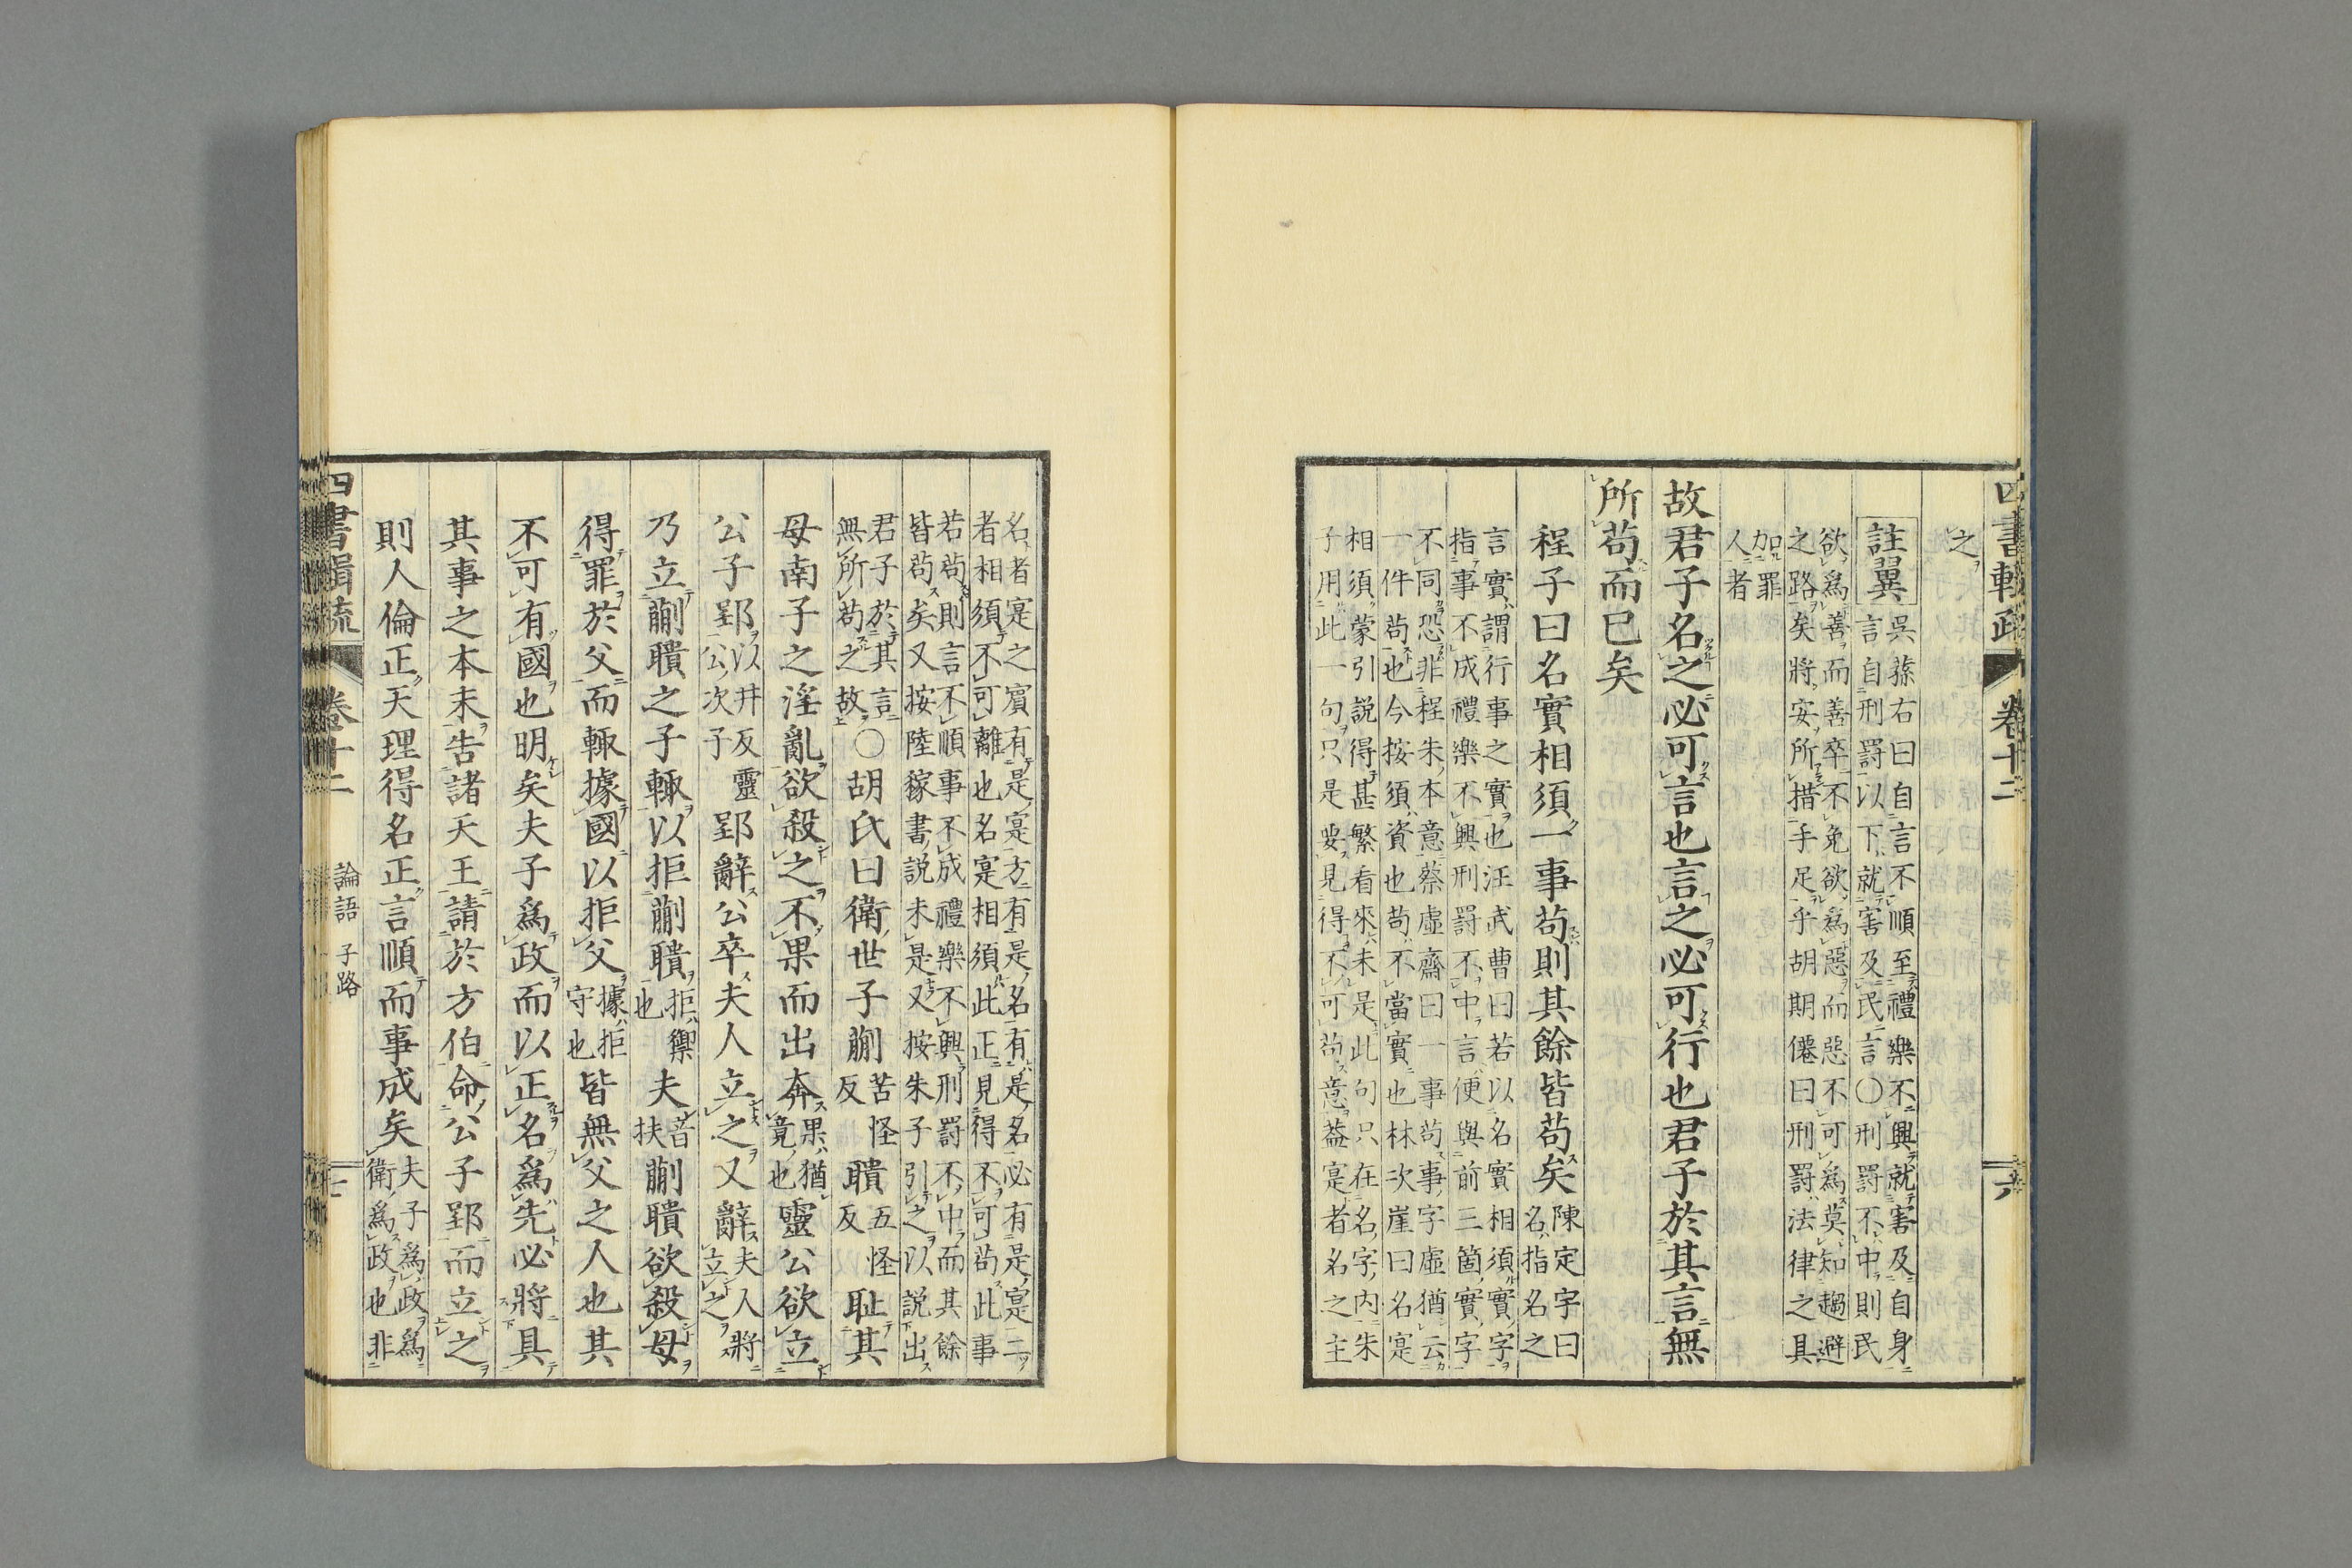 四書輯疏 卷十二 六
之
註翼 吳蓀右曰自言不順至禮樂不興就害及自身
言自刑罰以下就害及民言〇刑罰不中則民
欲爲善而善卒不免欲爲惡而惡不可爲莫知趨避
之路矣將安所措手足乎胡期僊曰刑罰法律之具
加罪
人者
故君子名之必可言也言之必可行也君子於其言無
所苟而已矣
程子曰名實相須一事苟則其餘皆苟矣
陳定宇曰
名指名之
言實謂行事之實也汪武曹曰若以名實相須實字
指事不成禮樂不興刑罰不中言便與前三箇實字
不同恐非程朱本意蔡虛齋曰一事苟事字虛猶云
一件苟也今按須資也苟不當實也林次崖曰名寔
相須蒙引説得甚繁看來未是此句只在名字内朱
子用此一句只是要見得不可苟意葢寔者名之主
名者寔之賓有是寔方有是名有是名必有是寔二
者相須不可離也名寔相須此正見得不可苟此事
若苟則言不順事不成禮樂不興刑罰不中而其餘
皆苟矣又按陸稼書説未是又按朱子引之以説出
君子於其言
無所苟之故
〇胡氏曰衛世子蒯
苦怪
反
聵
五怪
反
耻其
母南子之淫亂欲殺之不果而出奔
果猶
竟也
靈公欲立
公子郢
以井反靈
公次子
郢辭公卒夫人立之又辭
夫人將
立之
乃立蒯聵之子輒以拒蒯聵
拒禦
也
夫
音
扶
蒯聵欲殺母
得罪於父而輒據國以拒父
據拒
守也
皆無父之人也其
不可有國也明矣夫子爲政而以正名爲先必將具
其事之本末告諸天王請於方伯命公子郢而立之
則人倫正天理得名正言順而事成矣
夫子爲政爲
衛爲政也非
四書輯疏 卷十二 論語 子路